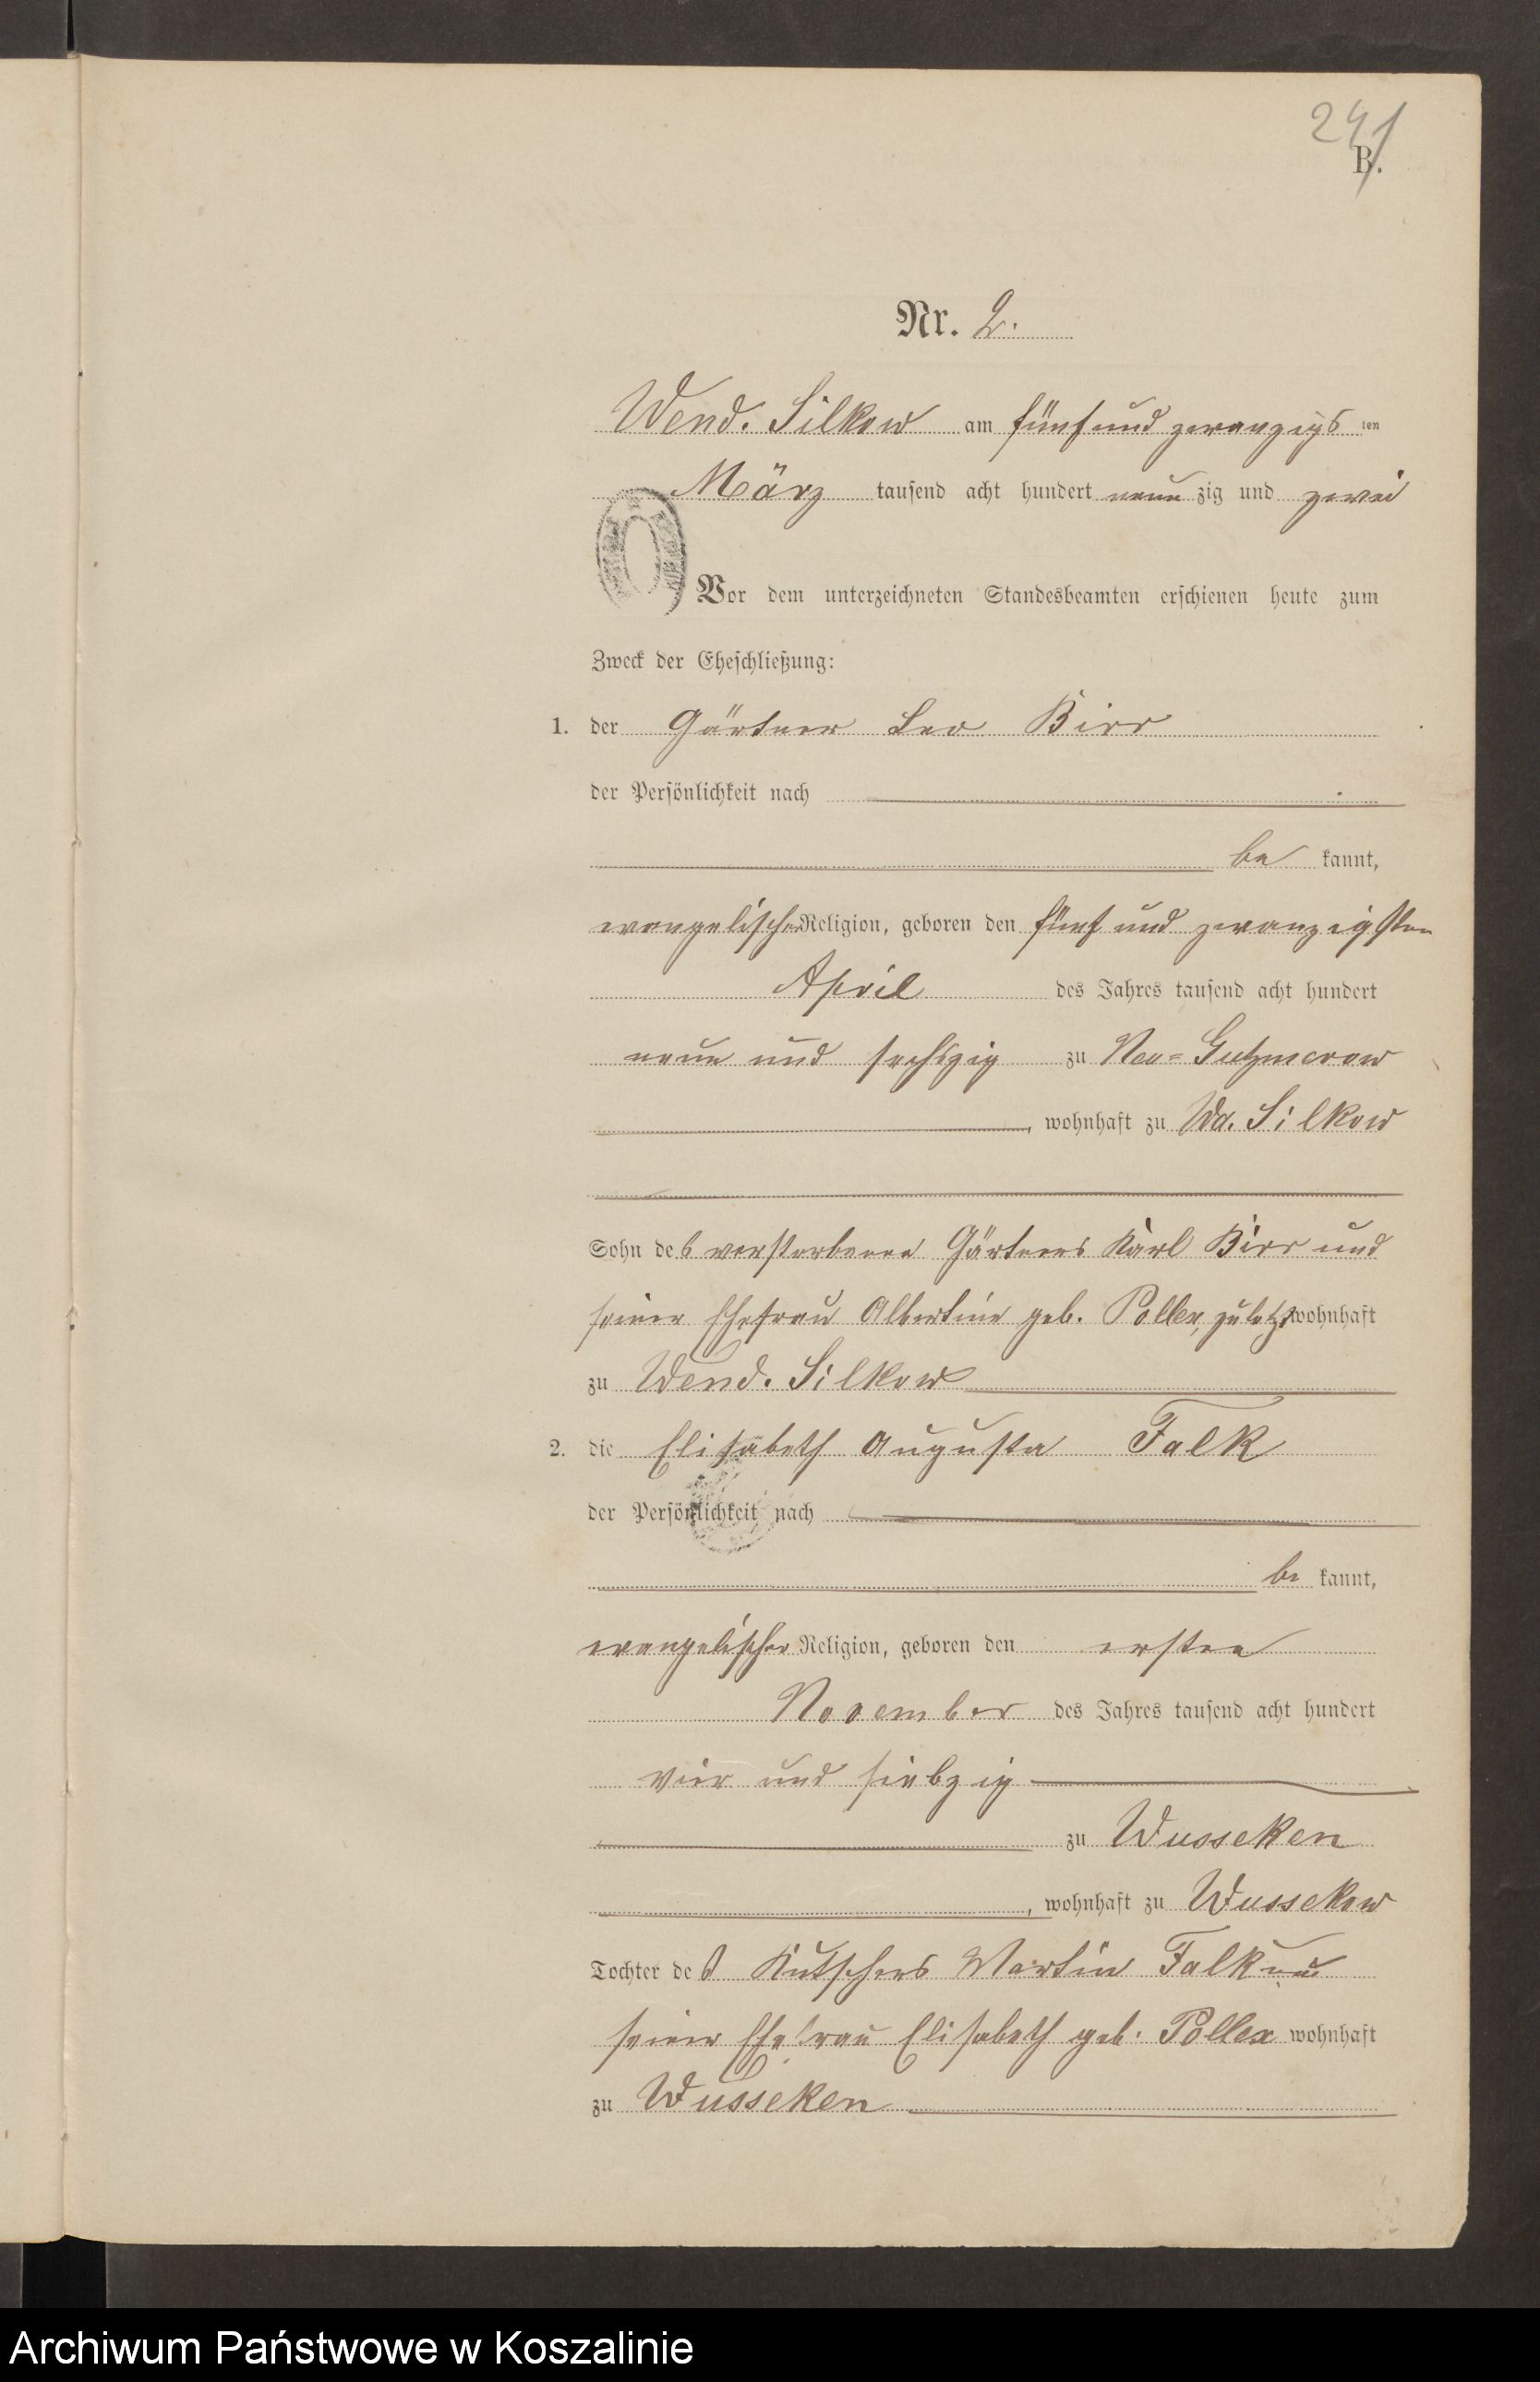 241
B.
Nr. 2.
Wend. Silkow am fünf und zwanzigs ten
März tausend acht hundert neun zig und zwei
Vor dem unterzeichneten Standesbeamten erschienen heute zum
Zweck der Eheschließung:
1. der Gärtner Leo Birr
der Persönlichkeit nach
be kannt,
evangelischer Religion, geboren den fünf und zwanzigsten
April des Jahres tausend acht hundert
neun und sechszig zu Neu-Gutzmerow
, wohnhaft zu Wd. Silkow
Sohn des verstorbenen Gärtners Karl Birr und
seiner Ehefrau Albertine geb. Pollex, zuletzt wohnhaft
zu Wend. Silkow
2. die Elisabeth Auguste Falk
der Persönlichkeit nach
be kannt,
evangelischer Religion, geboren den ersten
November des Jahres tausend acht hundert
vier und siebzig
zu Wusseken
, wohnhaft zu Wussekow
Tochter des Kutschers Martin Falk und
seiner Ehefrau Elisabeth geb. Pollex wohnhaft
zu Wusseken
Archiwum Państwowe w Koszalinie